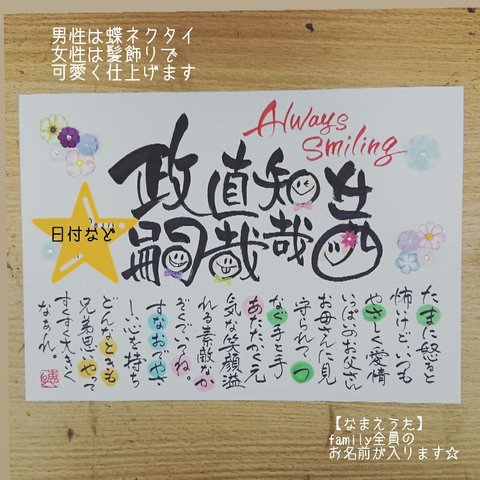 男性は蝶ネクタイ
女性は髪飾りで
可愛く仕上げます
Always
Smiling
茜
知哉
直哉
政嗣
日付など
たまに怒ると
怖いけど いつも
やさしく愛情
いっぱいのお父さん
お母さんに見
守られ つ
なぐ手と手
あたたかく元
気な笑顔溢
れる素敵なか
ぞくでいてね。
すなおでやさ
しい心を持ち
どんなときも
兄弟思いやって
すくすく大きく
なぁれ。
【なまえうた】
family全員の
お名前が入ります☆